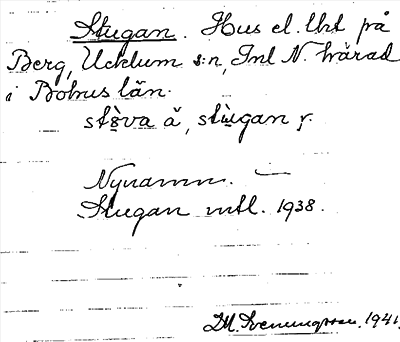 Stugan. Hus el. lht på
Berg, Ucklum s:n, Inl N. härad
i Bohus län.
stòva ă, stùgan r.
Nynamn. —
Stugan mtl. 1938.
D.M. Svenungsson. 1941.